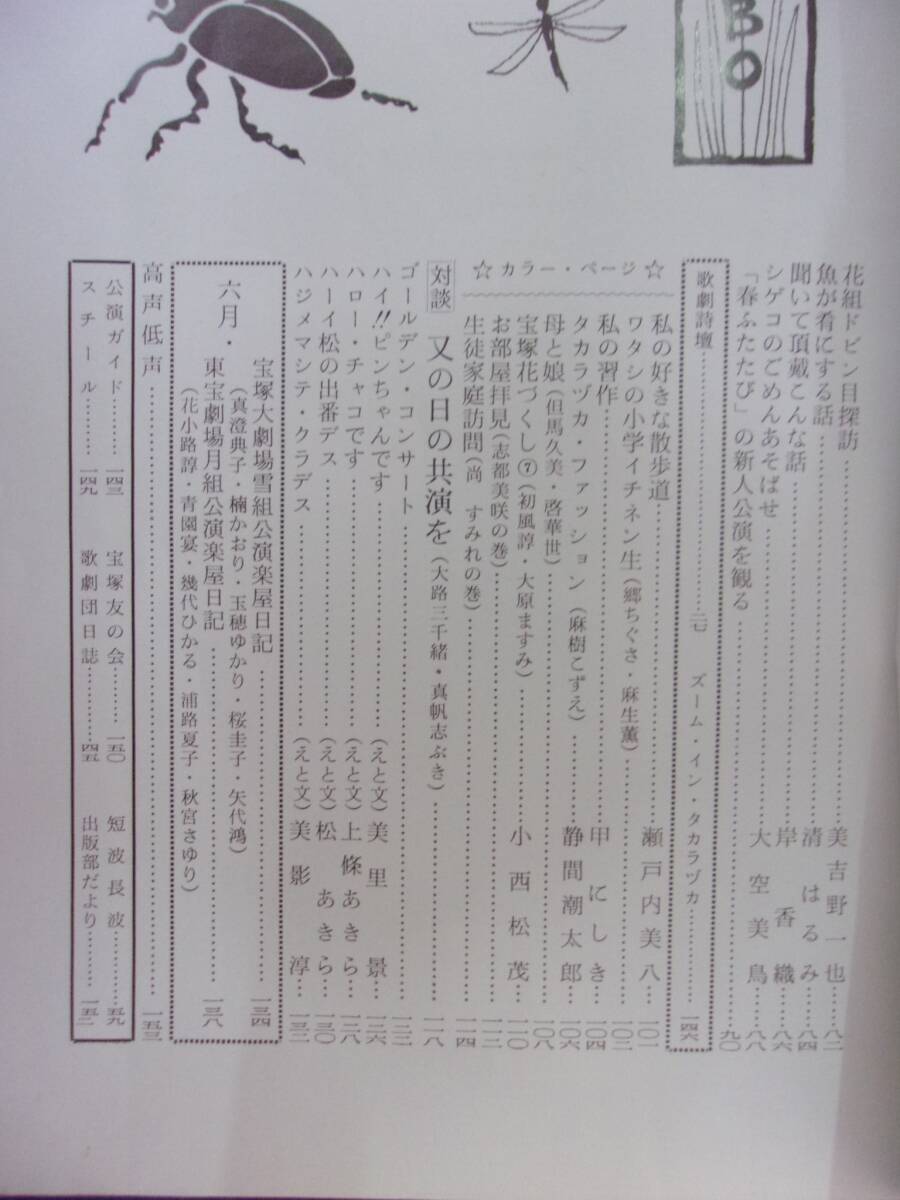 BO
花組ドビン目探訪……美吉野一也…八二
魚が肴にする話……清はるみ…八四
聞いて頂戴こんな話……岸香織…八六
シゲコのごめんあそばせ……大空美鳥…八八
「春ふたたび」の新人公演を観る……九〇
歌劇詩壇……二七 ズーム・イン・タカラヅカ……一四六
☆カラー・ページ☆
私の好きな散歩道……瀬戸内美八…一〇一
ワタシの小学イチネン生(郷ちぐさ・麻生薫)……一〇二
私の習作……甲にしき…一〇四
タカラヅカ・ファッション(麻樹こずえ)……静間潮太郎…一〇六
母と娘(但馬久美・啓華世)……一〇八
宝塚花づくし⑦(初風諄・大原ますみ)……小西松茂…一一〇
お部屋拝見(志都美咲の巻)……一一二
生徒家庭訪問(尚すみれの巻)……一一四
対談 又の日の共演を(大路三千緒・真帆志ぶき)……一一八
ゴールデン・コンサート……一二二
ハイ!!ピンちゃんです……(えと文)美里景…一二六
ハロー・チャコです……(えと文)上條あきら…一二八
ハーイ松の出番デス……(えと文)松あきら…一三〇
ハジメマシテ・クラデス……(えと文)美影淳…一三二
六月・
宝塚大劇場雪組公演楽屋日記……一三四
(真澄典子・楠かおり・玉穂ゆかり・桜圭子・矢代鴻)
東宝劇場月組公演楽屋日記……一三八
(花小路諄・青園宴・幾代ひかる・浦路夏子・秋宮さゆり)
高声低声……一五三
公演ガイド……一四三 宝塚友の会……一五〇 短波長波……一五九
スチール……一四九 歌劇団日誌……四五 出版部だより……一五二